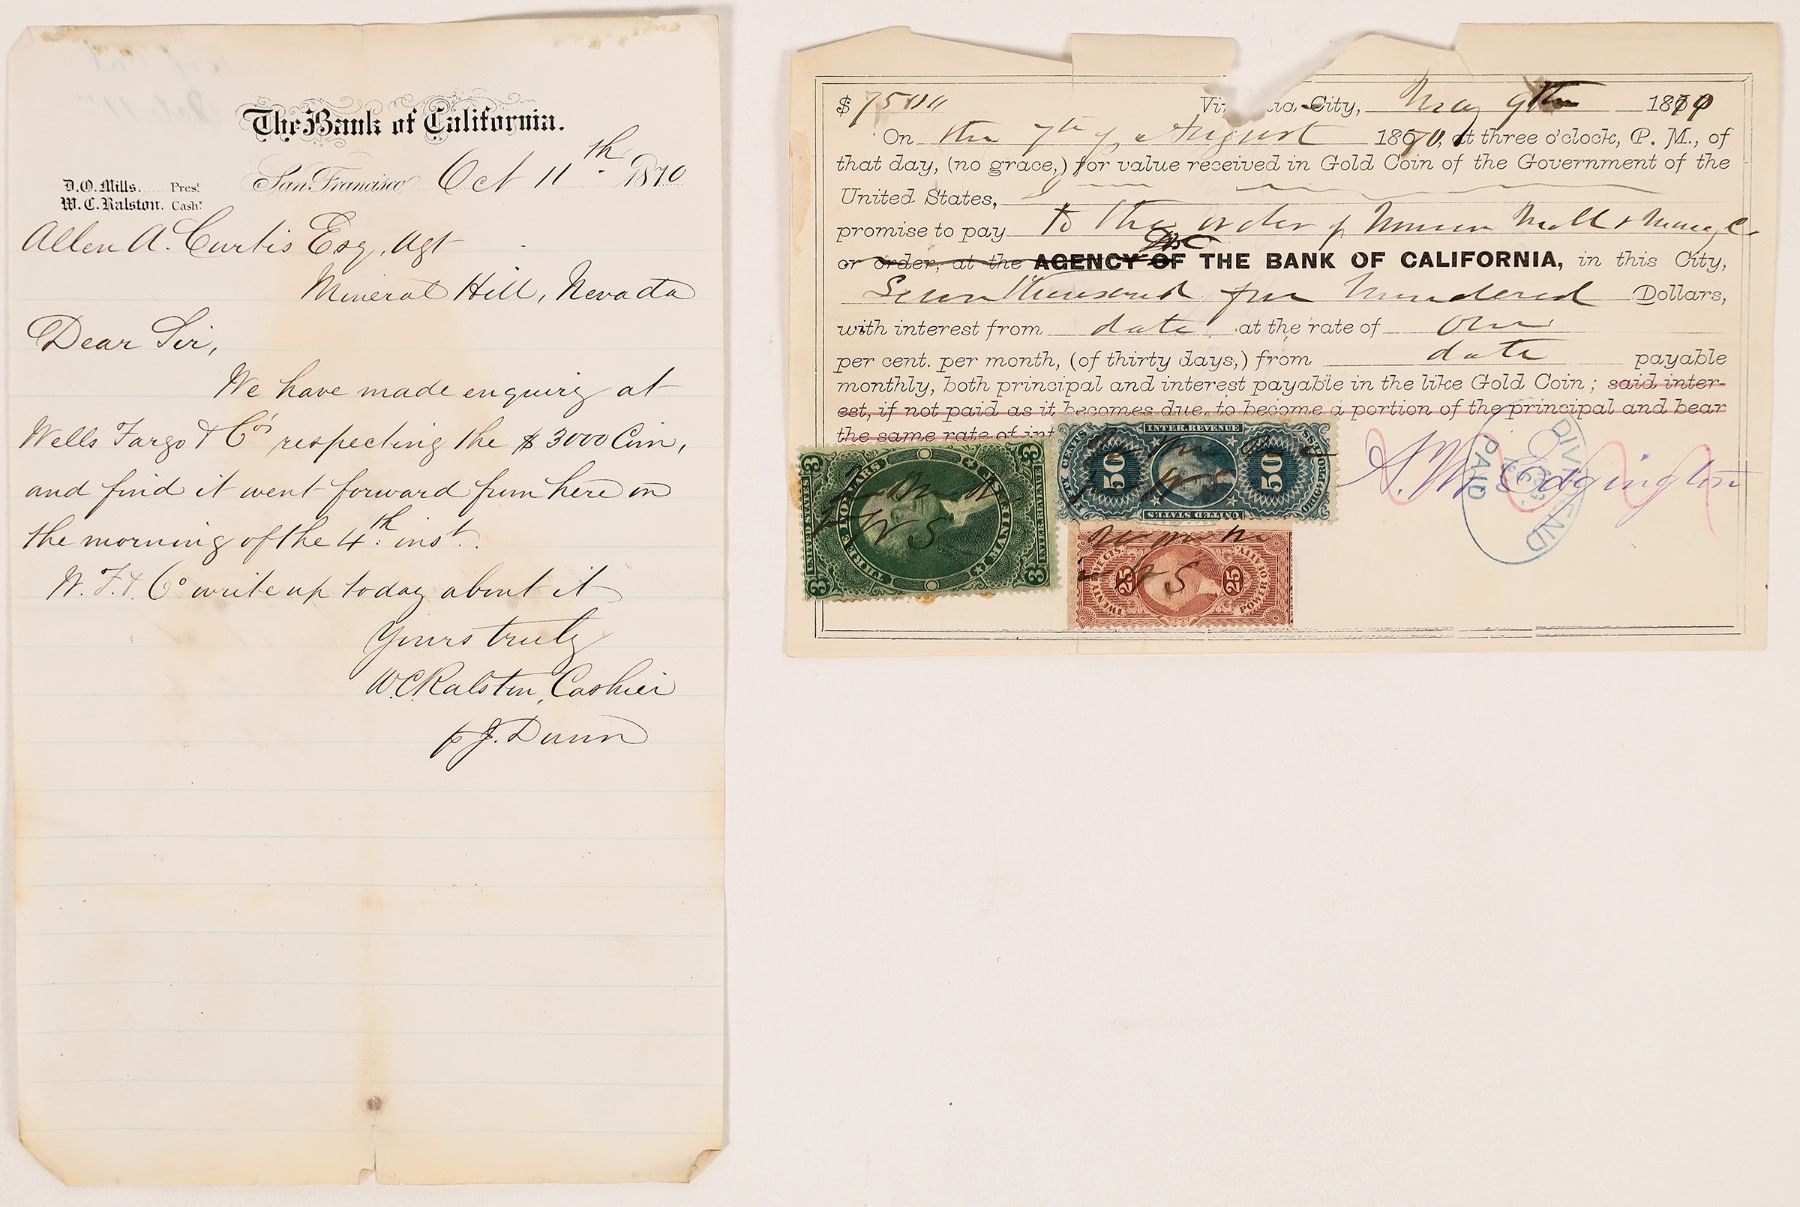 The Bank of California.
San Francisco Oct 11th 1870
D.O. Mills. Prest
W.C. Ralston. Casht
Allen A. Curtis Esq, Agt
Mineral Hill, Nevada
Dear Sir,
We have made enquiry at
Wells Fargo & Co's respecting the $3000 Coin,
and find it went forward from here on
the morning of the 4th inst.
W. F. & Co write up today about it
Yours truly
W.C. Ralston, Cashier
p J. Dunn
$7500 City, May 9th 1870
On the 7th of August 1870, at three o'clock, P. M., of
that day, (no grace,) for value received in Gold Coin of the Government of the
United States,
promise to pay to the order of Mill &
or order, at the AGENCY OF THE BANK OF CALIFORNIA, in this City,
Seven Thousand five hundred Dollars,
with interest from date at the rate of One
per cent. per month, (of thirty days,) from date payable
monthly, both principal and interest payable in the like Gold Coin; said inter-
est, if not paid as it becomes due, to become a portion of the principal and bear
the same rate of int
UNITED STATES INTER. REVENUE
THREE DOLLARS
3 3 3 3
INTER. REVENUE
50 50
UNITED STATES
25 25
W S
W S
W S
DIVIDEND
PAID
Edgington